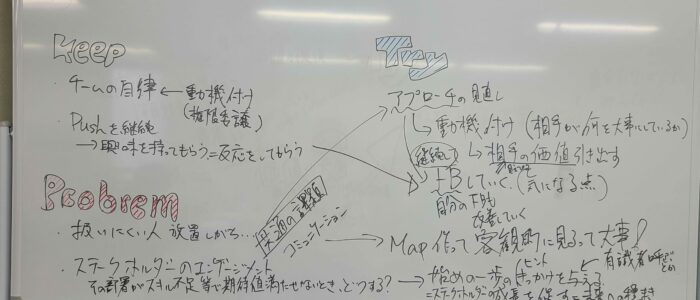 Keep
・チームの自律 ← 動機付け
(権限委譲)
・Pushを継続
→ 興味を持ってもらう=反応をしてもらう
Try
アプローチの見直し
→ 動機付け (相手が何を大事にしているか)
継続して
→ 相手の価値引き出す
→ FBしていく。(気になる点)
自分の下肢
改善していく
Probrem
・扱いにくい人 放置しがち…
共通の課題
コミュニケーション
→ Map 作って客観的に見るって大事!
・ステークホルダーのエンゲージメント
その部署がスキル不足等で期待値満たせないとき、どうする?
ヒント
→ 始めの一歩のきっかけを与える
← 有識者呼ぶ
とか
=ステークホルダーの成長を促す